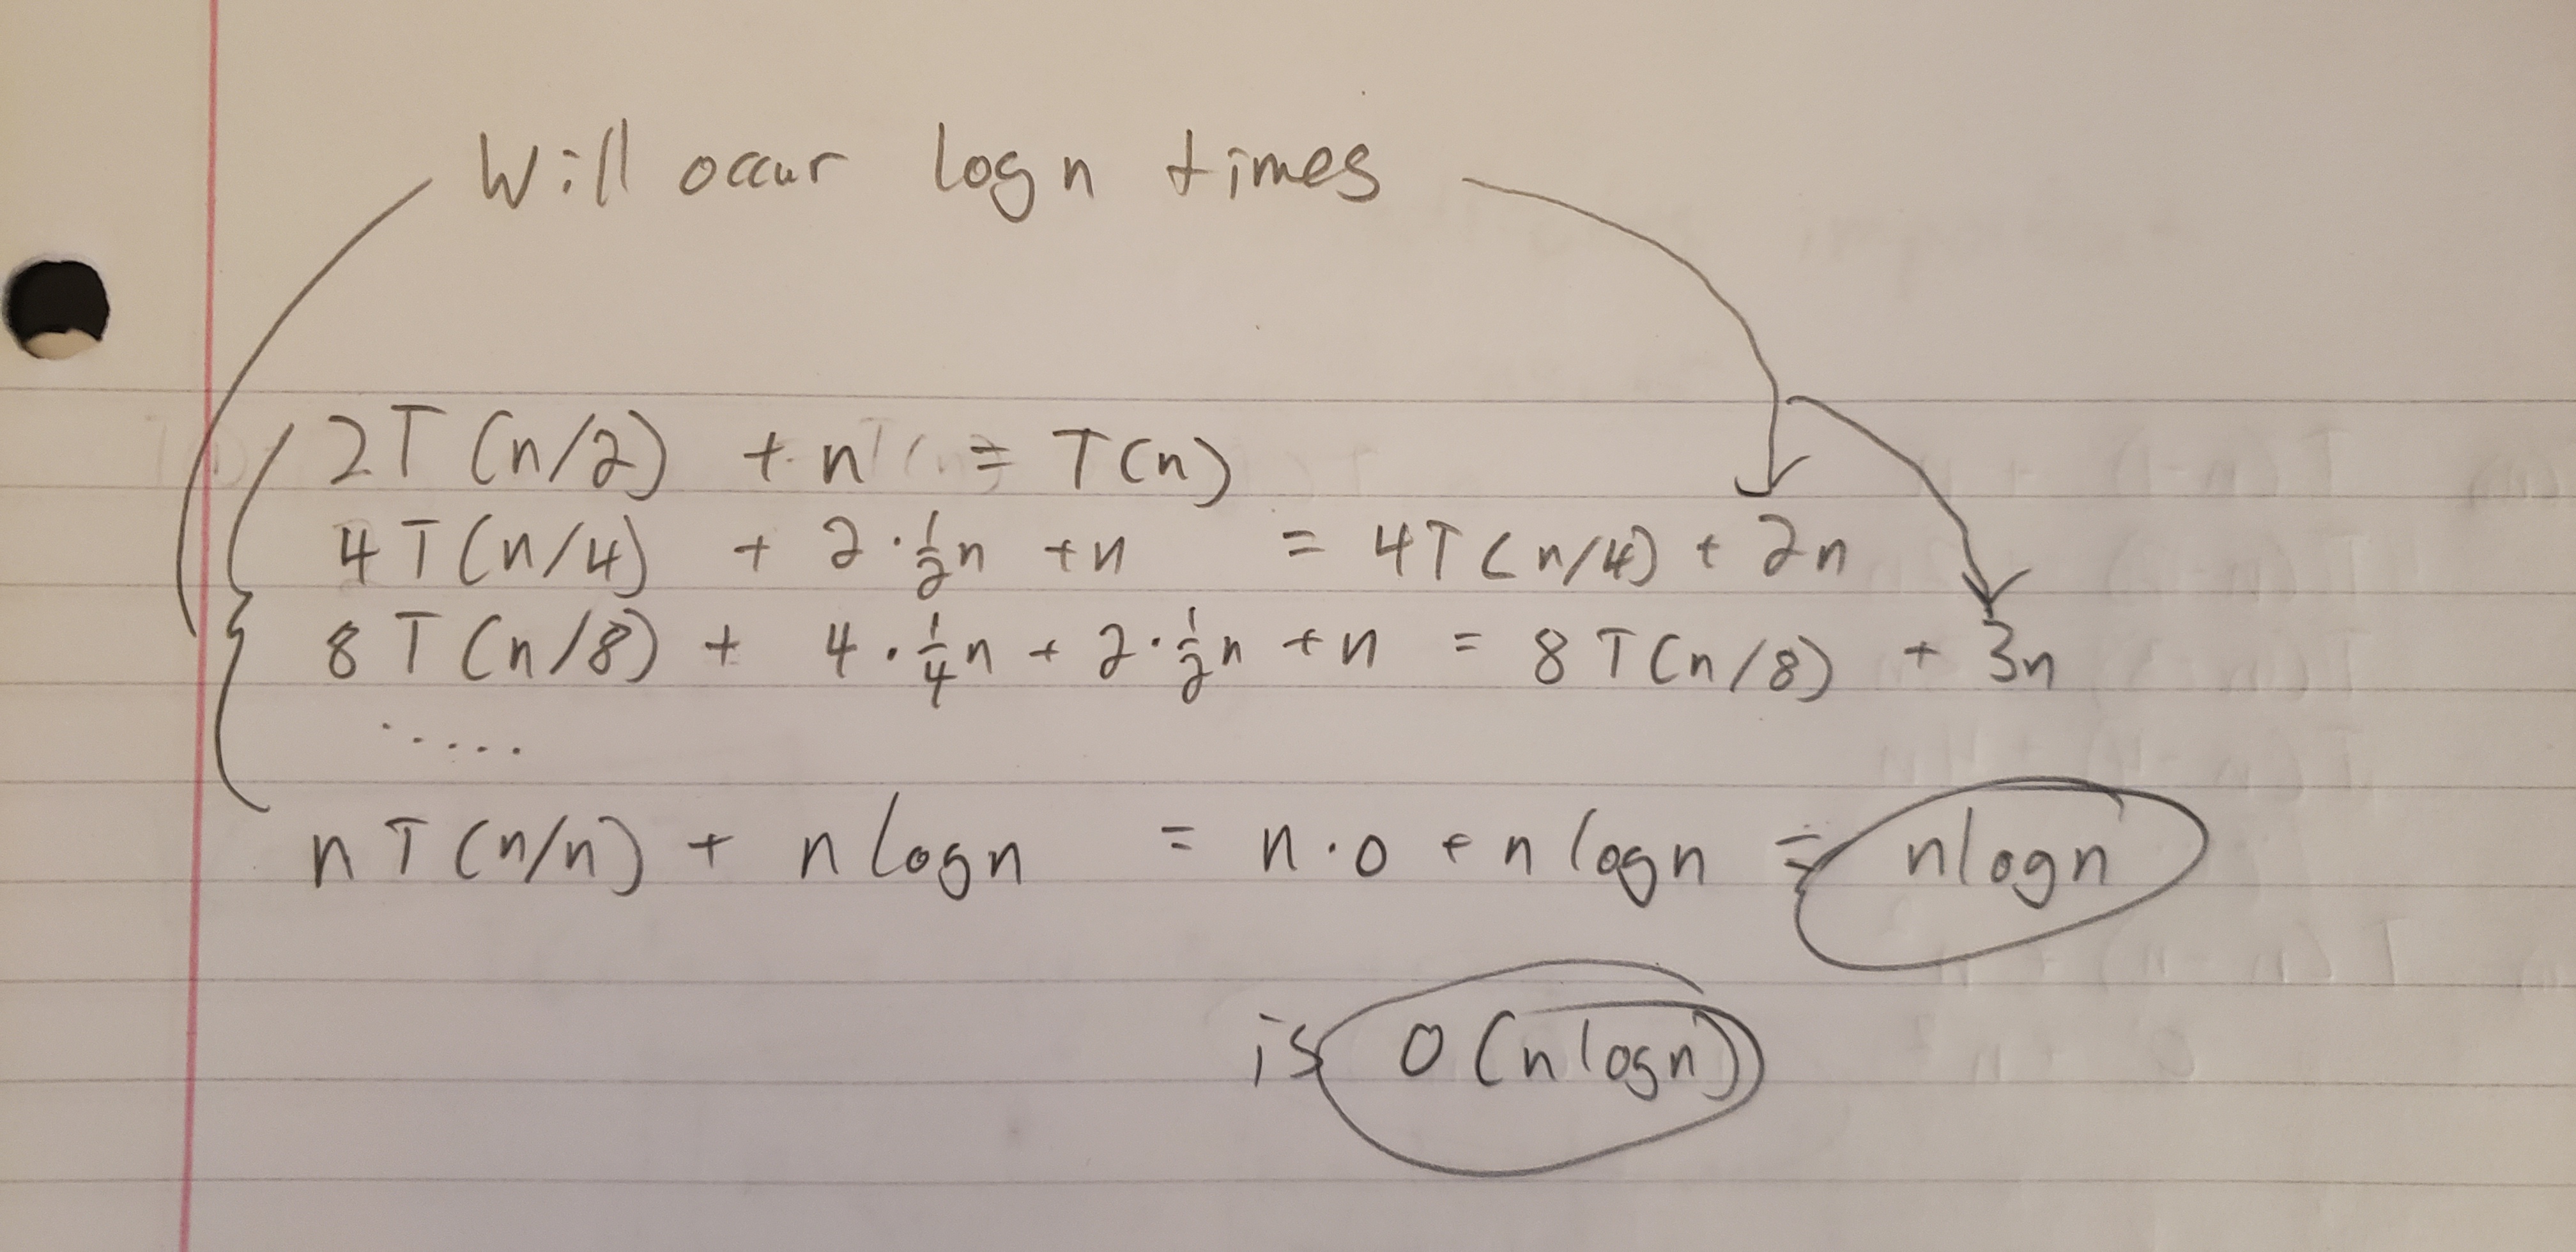 Will occur logn times
2T(n/2) + n = T(n)
4T(n/4) + 2·½n + n = 4T(n/4) + 2n
8T(n/8) + 4·¼n + 2·½n + n = 8T(n/8) + 3n
.....
nT(n/n) + nlogn = n·0 + nlogn = nlogn
is O(nlogn)